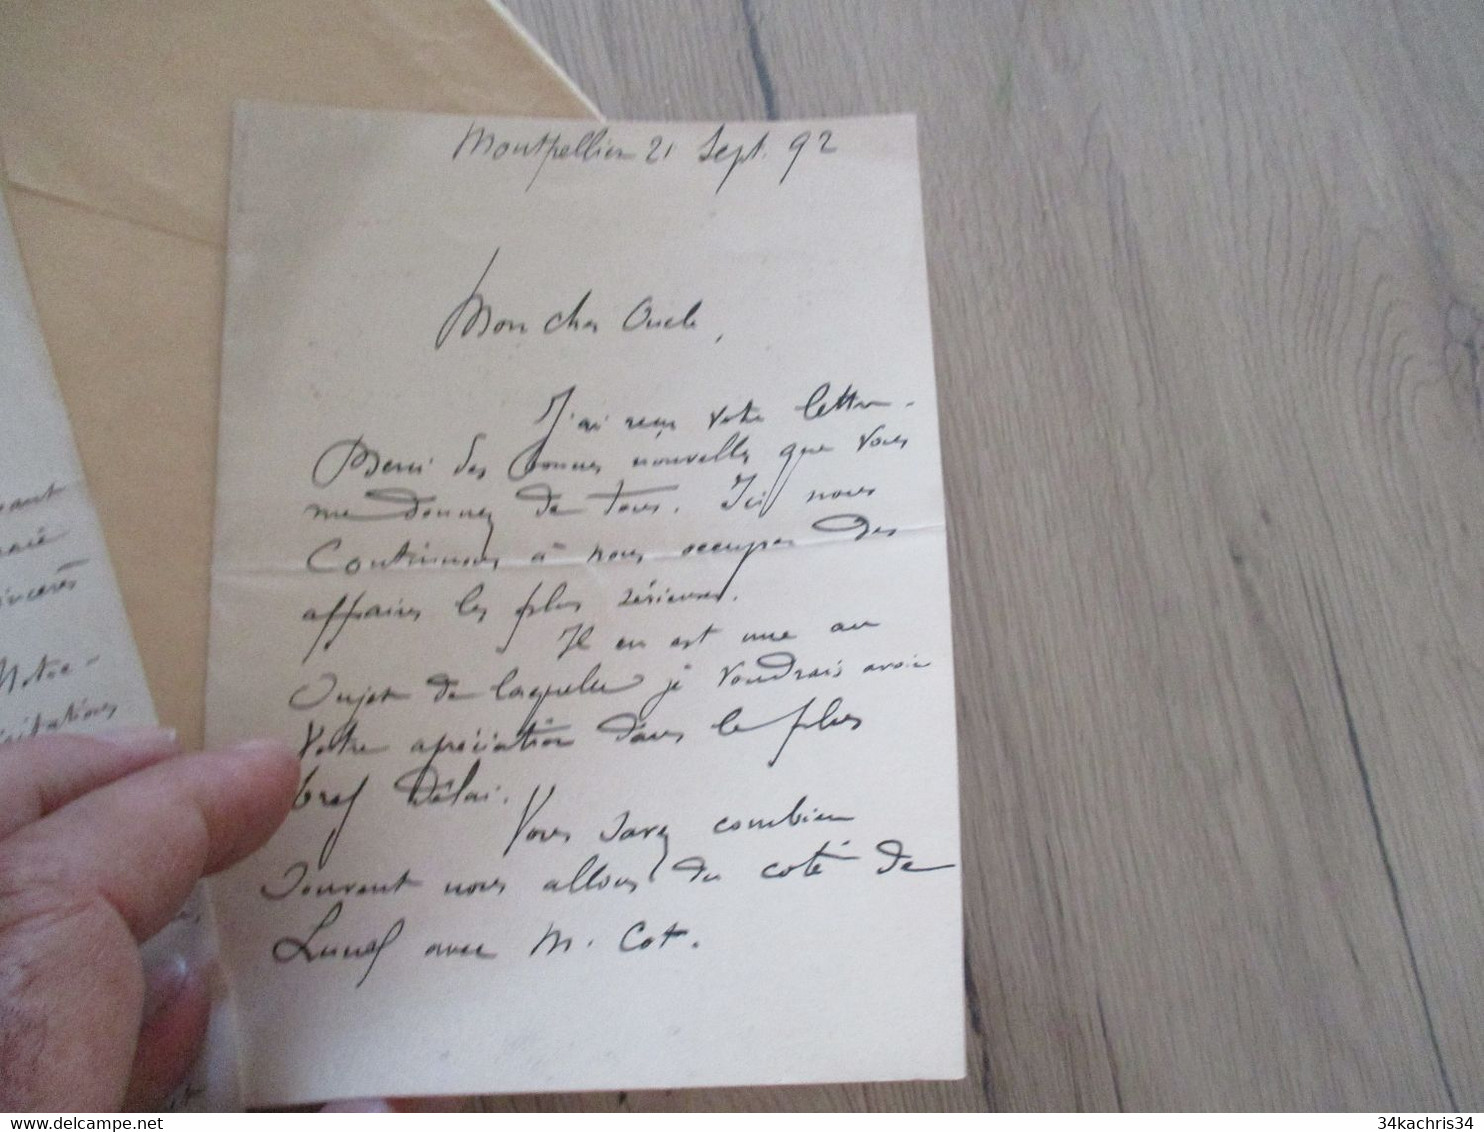 Montpellier 21 Sept. 92
Mon cher Oncle,
J'ai reçu votre lettre.
Merci des bonnes nouvelles que vous
me donnez de tous. Ici nous
Continuons à nous occuper des
affaires les plus sérieuses.
Il en est une au
Sujet de laquelle je voudrais avoir
Votre apréciation dans le plus
bref délai.
Vous savez combien
Souvent nous allons du coté de
Lunel avec M. Cot.
Notre-
34kachris34